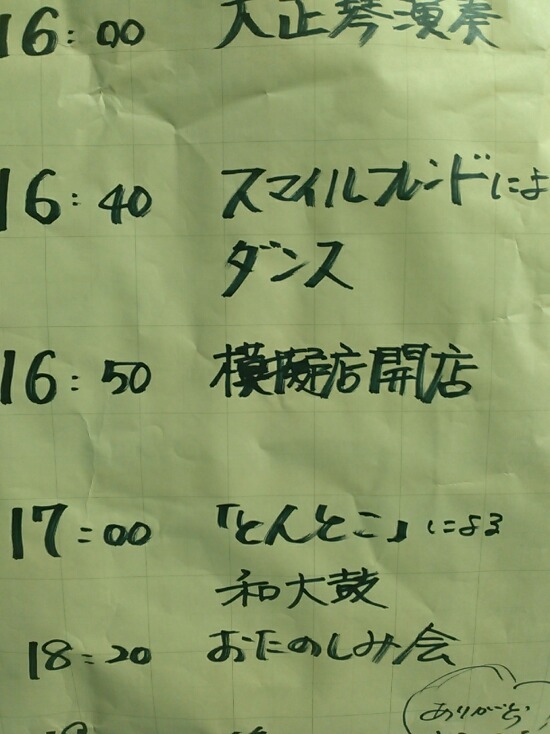 16:00 大正琴演奏
16:40 スマイルフレンドによ
ダンス
16:50 模擬店開店
17:00 「とんとこ」による
和太鼓
18:20 おたのしみ会
ありがとう